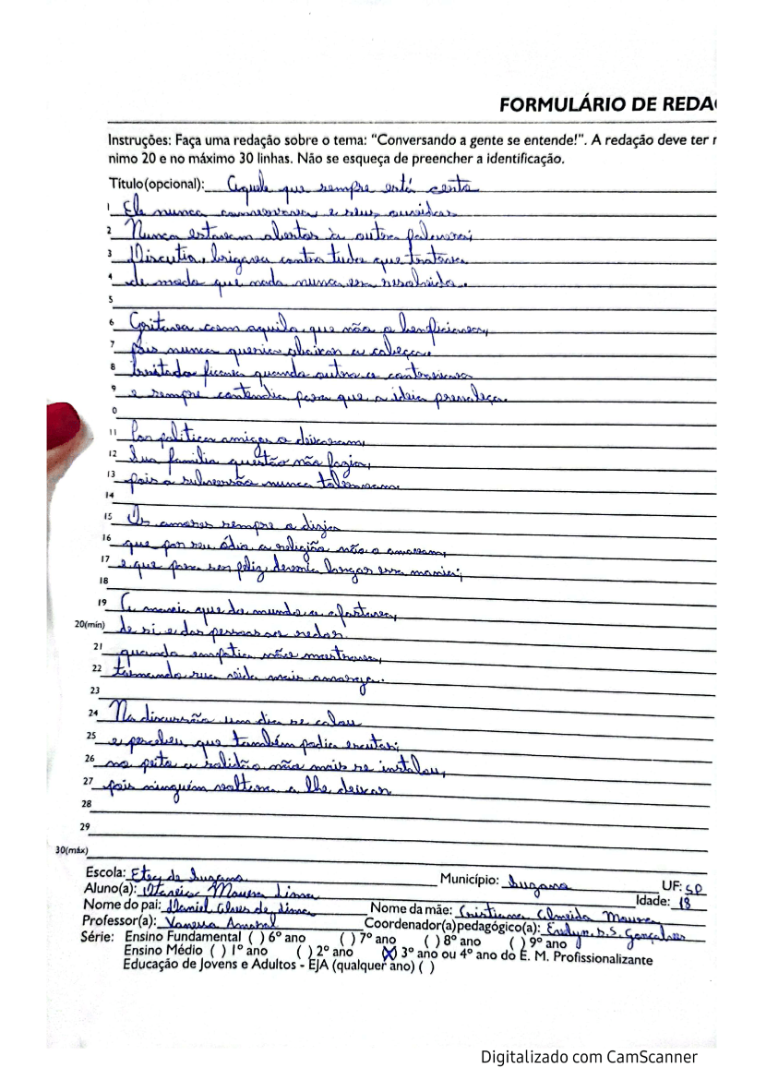 FORMULÁRIO DE REDA
Instruções: Faça uma redação sobre o tema: "Conversando a gente se entende!". A redação deve ter
nimo 20 e no máximo 30 linhas. Não se esqueça de preencher a identificação.
Título(opcional): Aquele que sempre está certo
1 Ele nunca conversava e seus ouvidos
2 Nunca estavam abertos à outra palavra;
3 Discutia, brigava contra tudo que tratava
4 de modo que nada nunca era resolvido.
5
6 Gritava com aquilo que não o beneficiava,
7 pois nunca queria abaixar a cabeça.
8 Irritado ficava quando outro o contrariava
9 e sempre contendia para que a ideia prevaleça.
0
11 Por política amigos o deixaram,
12 Sua família questão não fazia,
13 pois a subversão nunca toleraram.
14
15 Os amores sempre o dizia
16 que por seu ódio a religião não o amavam,
17 e que para ser feliz, deveria largar essa mania;
18
19 A mania que do mundo o afastava,
20(min) de si e das pessoas ao redor
21 quando empatia não mostrava,
22 tornando sua vida mais amarga.
23
24 Na discussão um dia se calou
25 e percebeu que também podia escutar;
26 no peito a solidão não mais se instalou,
27 pois ninguém voltava a lhe deixar
28
29
30(máx)
Escola: Etec de Suzano Município: Suzano UF: SP
Aluno(a): Moura Lima Idade: 18
Nome do pai: Daniel Alves de Lima Nome da mãe: Cristiane Almeida Moura
Professor(a): Vanessa Coordenador(a)pedagógico(a): Evelyn. S. Gonçalves
Série: Ensino Fundamental ( ) 6º ano ( ) 7º ano ( ) 8º ano ( ) 9º ano
Ensino Médio ( ) 1º ano ( ) 2º ano (X) 3º ano ou 4º ano do E. M. Profissionalizante
Educação de Jovens e Adultos - EJA (qualquer ano) ( )
Digitalizado com CamScanner